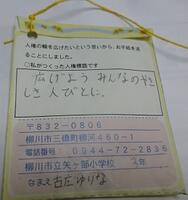 人権の輪を広げたいという思いから、お手紙を送
ることにしました。
○私がつくった人権標語です
広げよう みんなのやさ
しさ 人びとに。
〒832-0806
柳川市三橋町柳河460-1
電話番号 0944-72-2836
柳川市立矢ヶ部小学校 2年
なまえ 古庄ゆりな